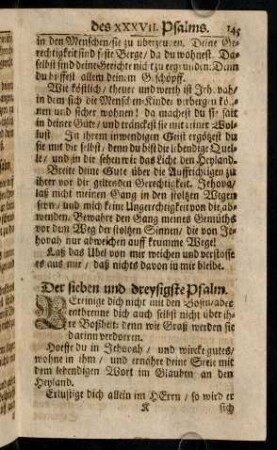 des XXXVII. Psalms. 145
in den Menschen/ sie zu überzeugen. Deine Ge-
rechtigkeit sind feste Berge/ da du wohnest. Da-
selbst sind deine Gerichte nicht zu ergründen: Denn
du hilffest allem deinem Geschöpff.
Wie köstlich/ theuer und werth ist Jehovah/
in dem sich die Menschen-Kinder verbergen kö̃-
nen und sicher wohnen! da machest du sie satt
in deiner Güte/ und tränckest sie mit reiner Wol-
lust In ihrem inwendigen Geist ergötzest du
sie mit dir selbst/ denn du bist die lebendige Quel-
le/ und in dir sehen wir das Licht den Heyland.
Breite deine Güte über die Auffrichtigen zu
ihrer vor dir geltenden Gerechtigkeit. Jehova/
laß nicht meinen Gang in den stoltzen Wegen
seyn/ und mich keine Ungerechtigkeit von dir ab-
wenden. Bewahre den Gang meines Gemüths
vor dem Weg der stoltzen Sinnen/ die von Je-
hovah nur abweichen auff krumme Wege!
Laß das Übel von mir weichen und verstosse
es aus mir/ daß nichts davon in mir bleibe.
Der sieben und dreysigste Psalm.
VEreinige dich nicht mit den Bösen/ aber
entbrenne dich auch selbst nicht über ih-
re Boßheit: denn wie Graß werden sie
darinn verdorren.
Hoffe du in Jehovah/ und wircke gutes/
wohne in ihm/ und ernähre deine Seele mit
dem lebendigen Wort im Glauben an den
Heyland.
Erlustige dich allein im HErrn/ so wird er
K sich